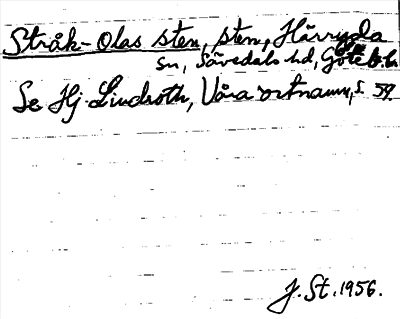 Stråk-Olas sten, sten, Härryda
sn, Sävedals hd, Göteb. l.
Se Hj. Lindroth, Våra ortnamn, s. 59.
J. St. 1956.